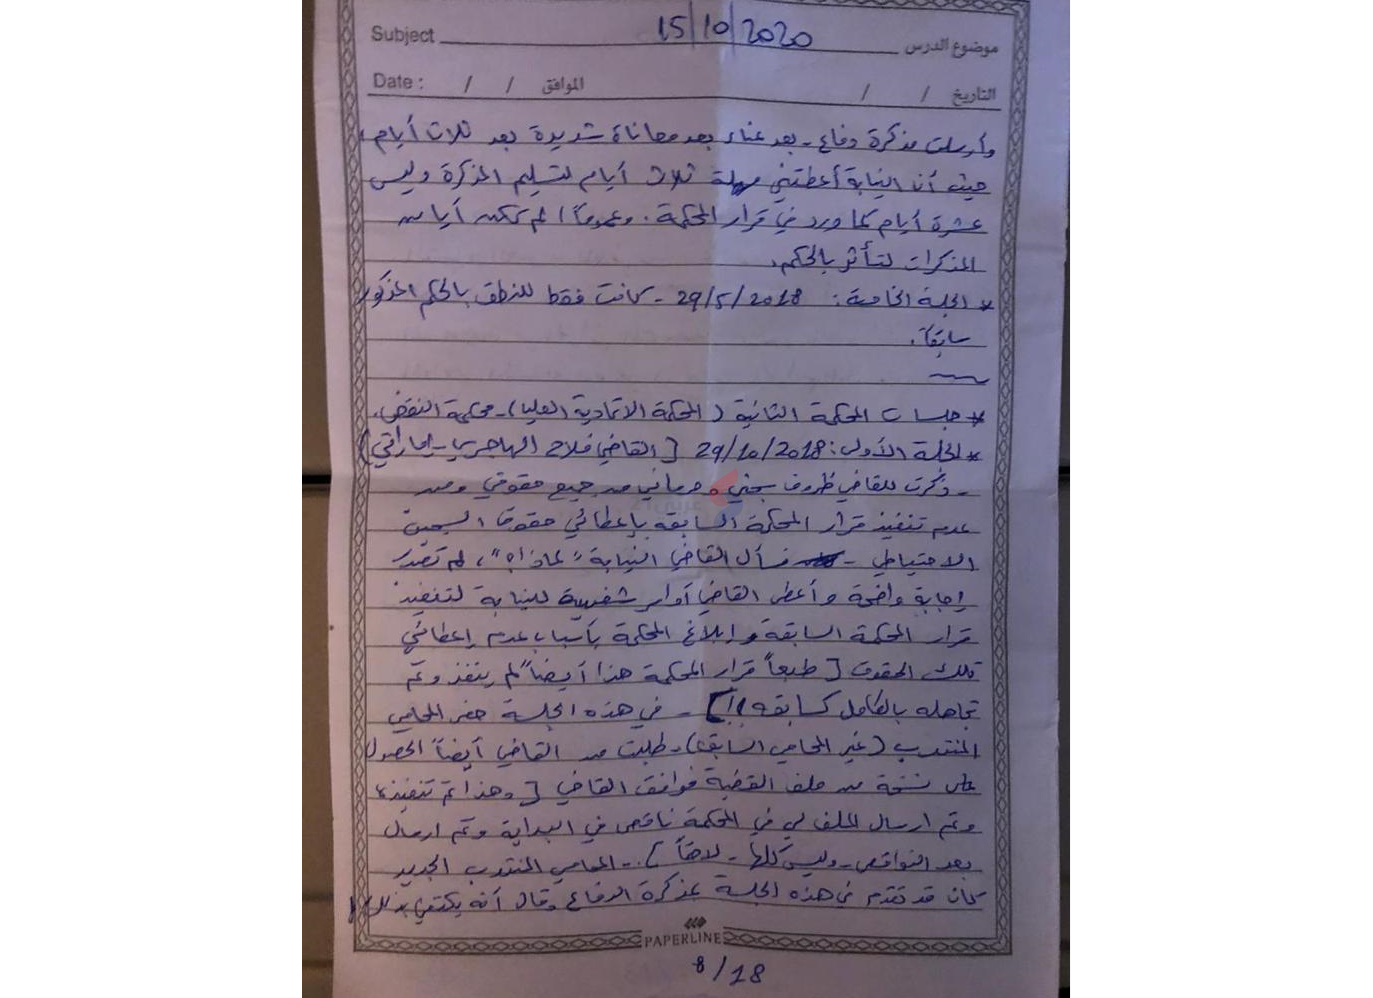 Subject 15/10/2020 موضوع الدرس
Date : / / الموافق / / التاريخ
وأرسلت مذكرة دفاع - بعد عناء بعد معاناة شديدة بعد ثلاث أيام،
حيث أن النيابة أعطتني مهلة ثلاث أيام لتسليم المذكرة وليس
عشرة أيام كما ورد في قرار المحكمة. وعموماً لم تكن أياً من
المذكرات لتأثر بالحكم.
* الجلسة الخامسة: 29/5/2018 - كانت فقط للنطق بالحكم المذكور
سابقاً.
* جلسات المحكمة الثانية (المحكمة الاتحادية العليا) - محكمة النقض.
* الجلسة الأولى: 29/10/2018 [القاضي فلاح الهاجري - إماراتي]
- ذكرت للقاضي ظروف سجني وحرماني من جميع حقوقي ومن
عدم تنفيذ قرار المحكمة السابقة بإعطائي حقوق السجين
الاحتياطي - فسأل القاضي النيابة "لماذا؟"، لم تقدر
إجابة واضحة وأعطى القاضي أوامر شفهية للنيابة لتنفيذ
قرار المحكمة السابقة وإبلاغ المحكمة بأسباب عدم إعطائي
تلك الحقوق [طبعاً قرار المحكمة هذا أيضاً لم ينفذ وتم
تجاهله بالكامل كسابقه!!] - في هذه الجلسة حضر المحامي
المنتدب (غير المحامي السابق) - طلبت من القاضي أيضاً الحصول
على نسخة من ملف القضية فوافق القاضي [وهذا تم تنفيذه
وتم ارسال الملف لي في المحكمة ناقص في البداية وتم ارسال
بعد النواقص - وليس كلها - لاحقاً]. - المحامي المنتدب الجديد
كان قد تقدم في هذه الجلسة بمذكرة الدفاع وقال أنه يكتفي بذلك
PAPERLINE
8/18